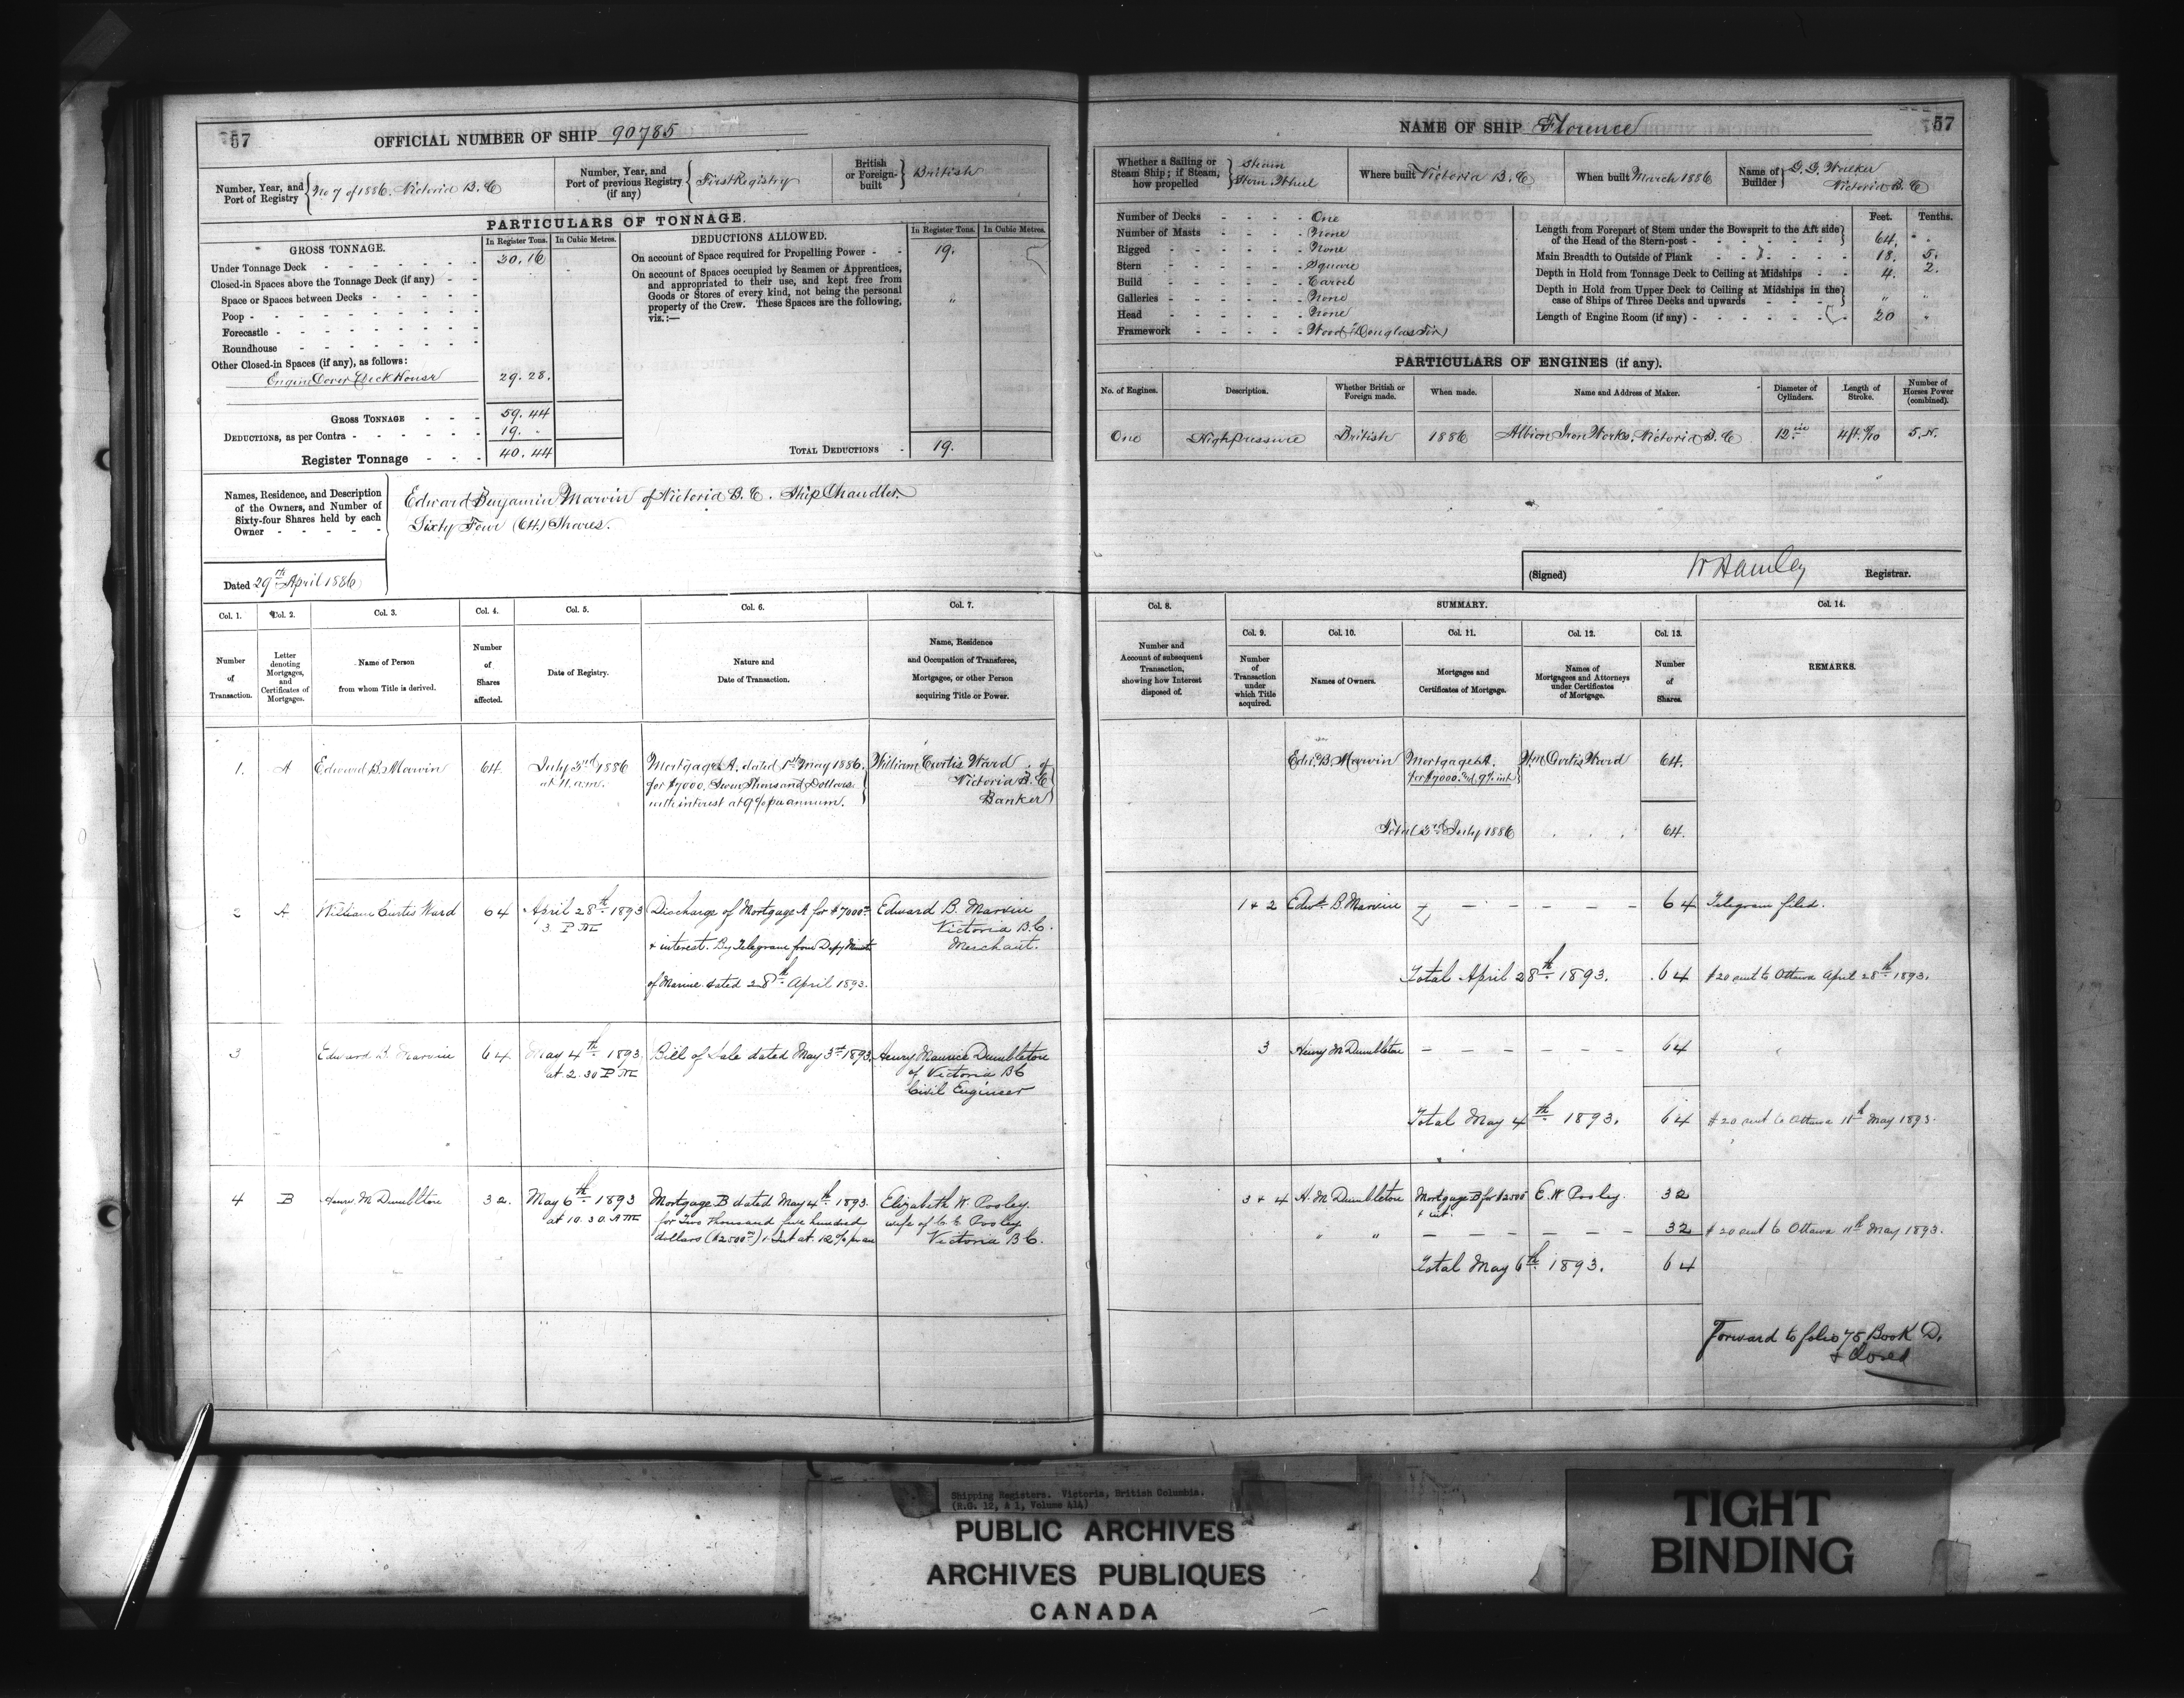 57
OFFICIAL NUMBER OF SHIP 90785
Number, Year, and Port of Registry No 7 of 1886. Victoria B.C
Number, Year, and Port of previous Registry (if any) First Registry
British or Foreign-built British
PARTICULARS OF TONNAGE.
GROSS TONNAGE. In Register Tons. In Cubic Metres.
Under Tonnage Deck - 30.16
Closed-in Spaces above the Tonnage Deck (if any) -
Space or Spaces between Decks -
Poop -
Forecastle -
Roundhouse -
Other Closed-in Spaces (if any), as follows:
Engine Cover Deck House 29.28.
GROSS TONNAGE - 59.44
DEDUCTIONS, as per Contra - 19. "
Register Tonnage - 40.44
DEDUCTIONS ALLOWED. In Register Tons. In Cubic Metres.
On account of Space required for Propelling Power - 19.
On account of Spaces occupied by Seamen or Apprentices,
and appropriated to their use, and kept free from
Goods or Stores of every kind, not being the personal
property of the Crew. These Spaces are the following,
viz.:— "
TOTAL DEDUCTIONS - 19.
Names, Residence, and Description
of the Owners, and Number of
Sixty-four Shares held by each
Owner -
Edward Benjamin Marvin of Victoria B.C. Ship Chandler
Sixty Four (64) Shares.
Dated 29th April 1886
NAME OF SHIP Florence
57
Whether a Sailing or Steam Ship; if Steam, how propelled Steam Stern Wheel
Where built Victoria B.C
When built March 1886
Name of Builder G. G. Walker Victoria B.C
Number of Decks - One
Number of Masts - None
Rigged - None
Stern - Square
Build - Carvel
Galleries - None
Head - None
Framework - Wood (Douglas Fir)
Feet. Tenths.
Length from Forepart of Stem under the Bowsprit to the Aft side
of the Head of the Stern-post - 64. "
Main Breadth to Outside of Plank 18. 5.
Depth in Hold from Tonnage Deck to Ceiling at Midships - 4. 2.
Depth in Hold from Upper Deck to Ceiling at Midships in the
case of Ships of Three Decks and upwards - " "
Length of Engine Room (if any) - 20 "
PARTICULARS OF ENGINES (if any).
No. of Engines. Description. Whether British or Foreign made. When made. Name and Address of Maker. Diameter of Cylinders. Length of Stroke. Number of Horses Power (combined).
One High pressure British 1886 Albion Iron Works. Victoria B.C 12 in 4 ft. 0/10 5. N.
(Signed) W Hamley Registrar.
Col. 1. Col. 2. Col. 3. Col. 4. Col. 5. Col. 6. Col. 7.
Number of Transaction.
Letter denoting Mortgages, and Certificates of Mortgages.
Name of Person from whom Title is derived.
Number of Shares affected.
Date of Registry.
Nature and Date of Transaction.
Name, Residence and Occupation of Transferee, Mortgagee, or other Person acquiring Title or Power.
1. A Edward B. Marvin 64. July 3rd 1886 at 11. a.m.
Mortgage A. dated 1st May 1886.
for $7000. Seven Thousand Dollars.
with interest at 9% per annum.
William Curtis Ward of
Victoria B.C
Banker
2 A William Curtis Ward 64 April 28th 1893 3 PM
Discharge of Mortgage A for $7000
+ interest. By Telegram from Depy Minist
of Marine dated 28th April 1893.
Edward B. Marvin
Victoria B.C.
Merchant.
3 Edward B. Marvin 64 May 4th 1893. at 2.30 PM
Bill of Sale dated May 3rd 1893.
Henry Maurice Dumbleton
of Victoria BC
Civil Engineer
4 B Henry M Dumbleton 32. May 6th 1893 at 10.30. AM
Mortgage B dated May 4th 1893.
for Two thousand five hundred
dollars ($2500) + Int at 12% per an
Elizabeth W. Pooley.
wife of C E Pooley.
Victoria BC.
Col. 8. SUMMARY. Col. 14.
Col. 9. Col. 10. Col. 11. Col. 12. Col. 13.
Number and Account of subsequent Transaction, showing how Interest disposed of.
Number of Transaction under which Title acquired.
Names of Owners.
Mortgages and Certificates of Mortgage.
Names of Mortgagees and Attorneys under Certificates of Mortgage.
Number of Shares.
REMARKS.
Edw. B. Marvin Mortgage A. for $7000. and 9% int Wm Curtis Ward 64.
Total 3rd July 1886 64.
1 + 2 Edwd B. Marvin - - - - - 64 Telegram filed.
Total April 28th 1893. 64 $20 sent to Ottawa April 28th 1893.
3 Henry M Dumbleton - - - - - 64
Total May 4th 1893. 64 $20 sent to Ottawa 11th May 1893.
3 + 4 H. M Dumbleton Mortgage B for $2500 + int. E. W Pooley. 32
" " - - - - - 32 $20 sent to Ottawa 11th May 1893.
Total May 6th 1893. 64
Forward to folio 75 Book D.
+ Closed
Shipping Registers. Victoria, British Columbia.
(R.G. 12, A 1, Volume 414)
PUBLIC ARCHIVES
ARCHIVES PUBLIQUES
CANADA
TIGHT
BINDING